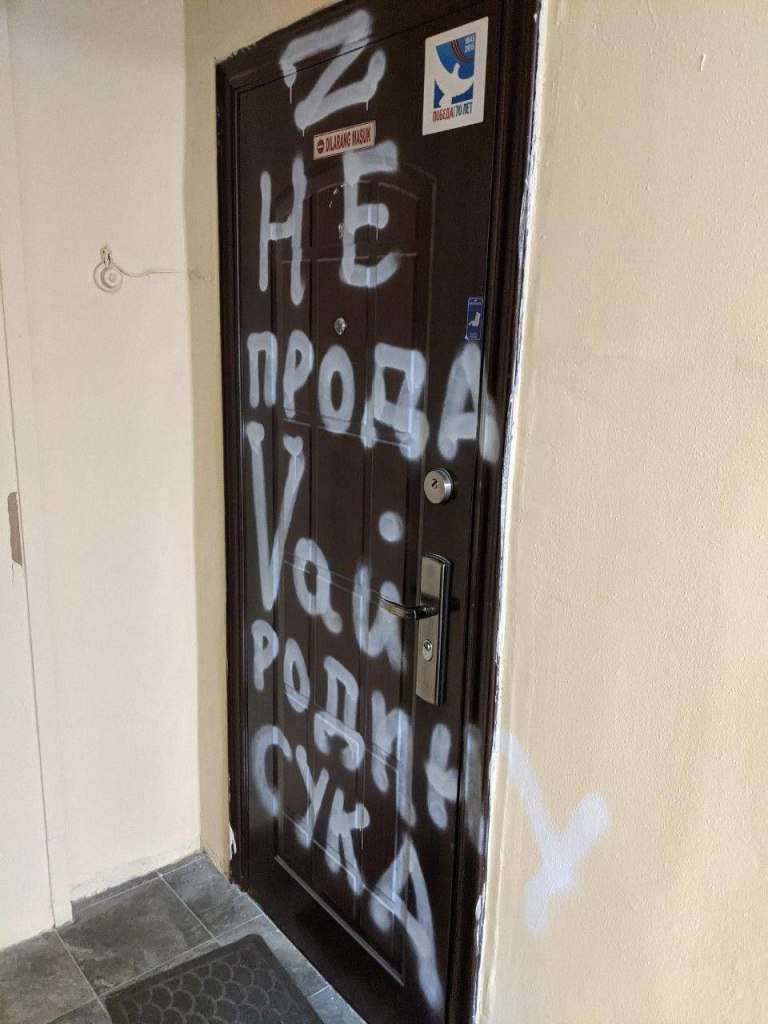 Z
1945
2015
ПОБЕДА! 70 ЛЕТ
DILARANG MASUK
НЕ
ПРОДА
Vай
РОДИНУ
СУКА